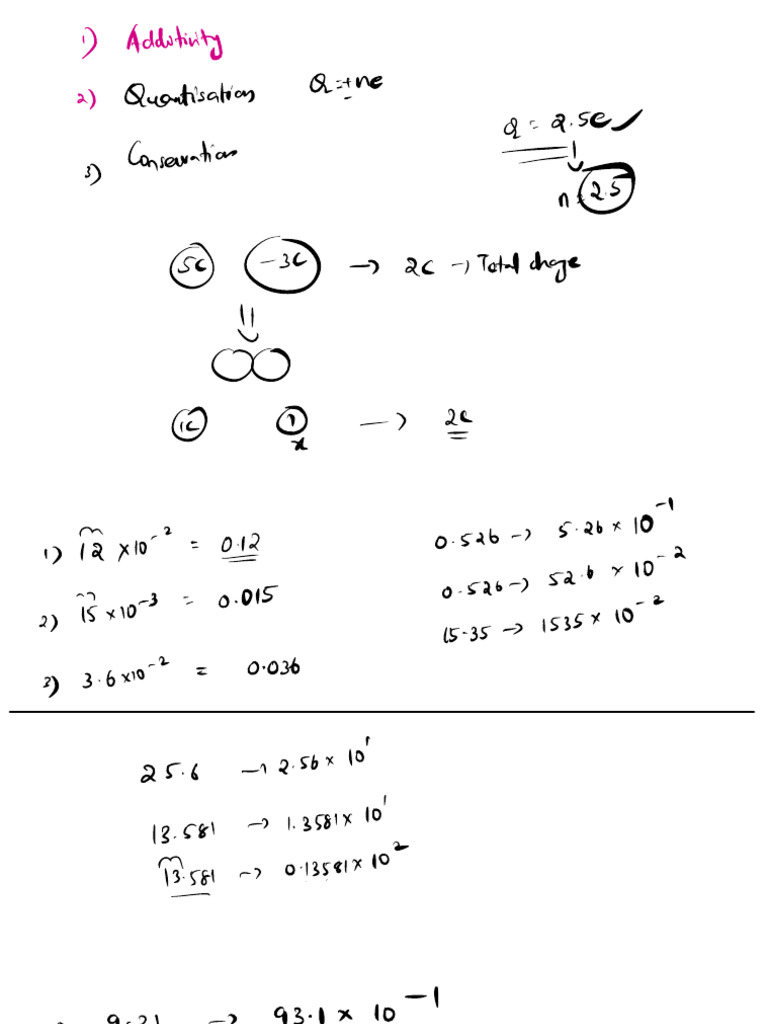 1) Addutivity
2) Quantisation Q=±ne
3) Conservation
Q = 2.5e ✓
n = 2.5
5C -3C → 2C → Total charge
1C x → 2C
1) 12 × 10⁻² = 0.12
2) 15 × 10⁻³ = 0.015
3) 3.6 × 10⁻² = 0.036
0.526 → 5.26 × 10⁻¹
0.526 → 52.6 × 10⁻²
15.35 → 1535 × 10⁻²
25.6 → 2.56 × 10¹
13.581 → 1.3581 × 10¹
13.581 → 0.13581 × 10²
→ 93.1 × 10⁻¹